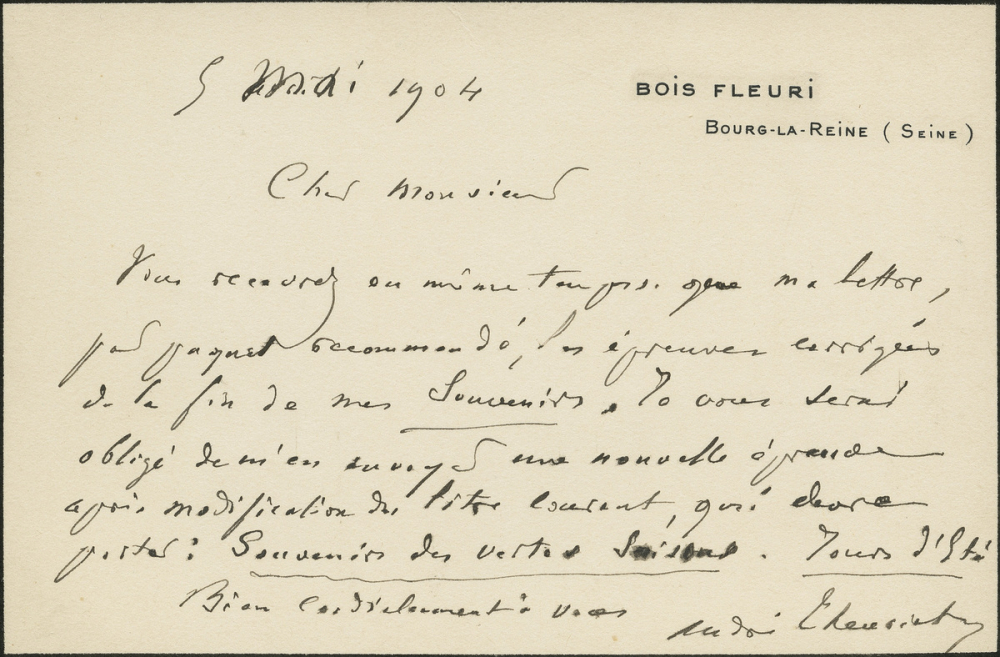 5 Mai 1904
BOIS FLEURI
BOURG-LA-REINE (SEINE)
Cher Monsieur
Vous recevrez en même temps que ma lettre,
par paquet recommandé, les épreuves corrigées
de la fin de mes Souvenirs. Je vous serai
obligé de m'en envoyer une nouvelle épreuve
après modification du titre courant, qui devra
porter : Souvenirs des vertes Saisons. Jours d'Été
Bien cordialement à vous
André Theuriet